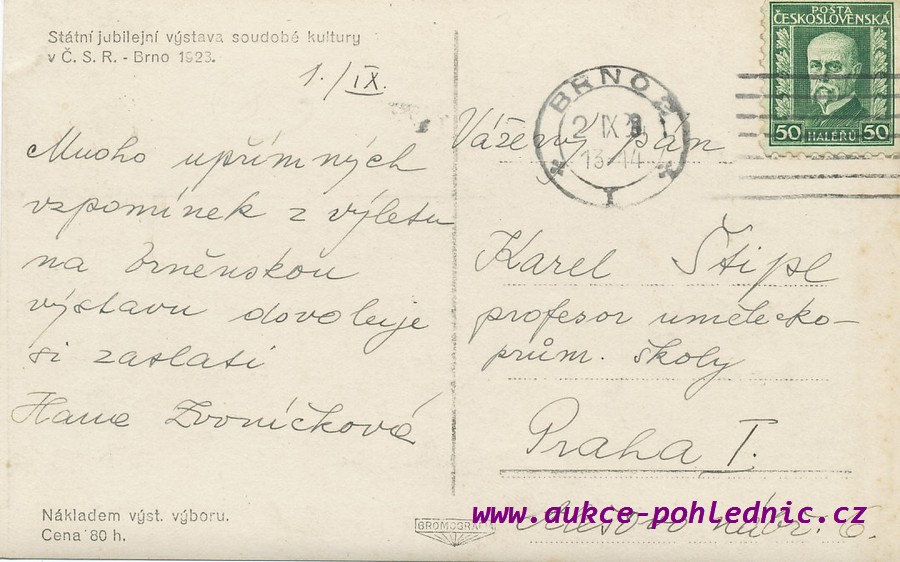 Státní jubilejní výstava soudobé kultury
v Č. S. R. - Brno 1923.
1./IX.
Mnoho upřímných
vzpomínek z výletu
na brněnskou
výstavu dovoluje
si zaslati
Hana Zvoníčková
Nákladem výst. výboru.
Cena 80 h.
BROMOGRAFIA
BRNO 2
2 IX 28
13-14
I
POŠTA
ČESKOSLOVENSKÁ
50 HALÉŘŮ 50
Vážený pán
Karel Štipl
profesor umělecko-
prům. školy
Praha I.
nábř. 6.
www.aukce-pohlednic.cz